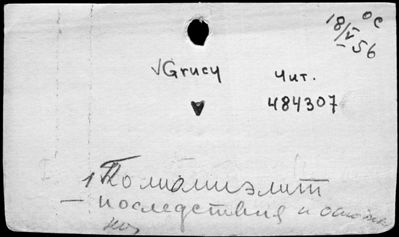 ос
18/V-56
√Grucy
Чит.
484307
1 Полиомиэлит
— последствия и